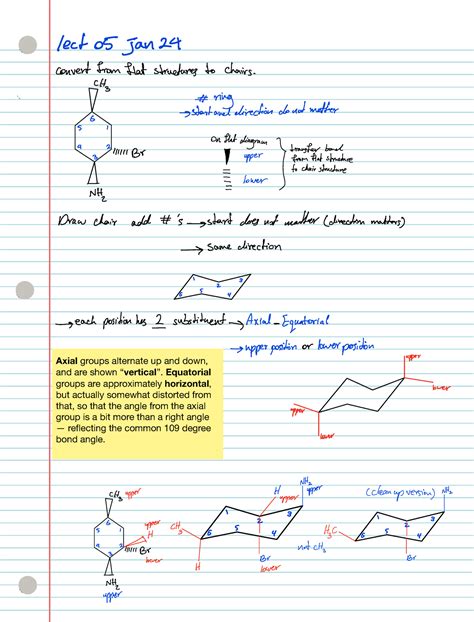 lect 05 Jan 24
convert from flat structures to chairs.
CH3
6
5 1
4 2
3
Br
NH2
# ring
→ start and direction do not matter
On flat diagram
upper
lower
transfer bond
from flat structure
to chair structure
Draw chair add #'s → start does not matter (direction matters)
→ same direction
1 2 3
6 5 4
→ each position has 2 substituent → Axial - Equatorial
→ upper position or lower position
Axial groups alternate up and down,
and are shown "vertical". Equatorial
groups are approximately horizontal,
but actually somewhat distorted from
that, so that the angle from the axial
group is a bit more than a right angle
— reflecting the common 109 degree
bond angle.
upper
lower
upper
lower
CH3 upper
6
5 1
4 2
3
upper
H
Br
lower
NH2
upper
H upper
NH2
1 2 3
CH3
6 5 4
H
Br
lower
not CH3
(clean up version)
NH2
1 2 3
H3C
6 5 4
Br